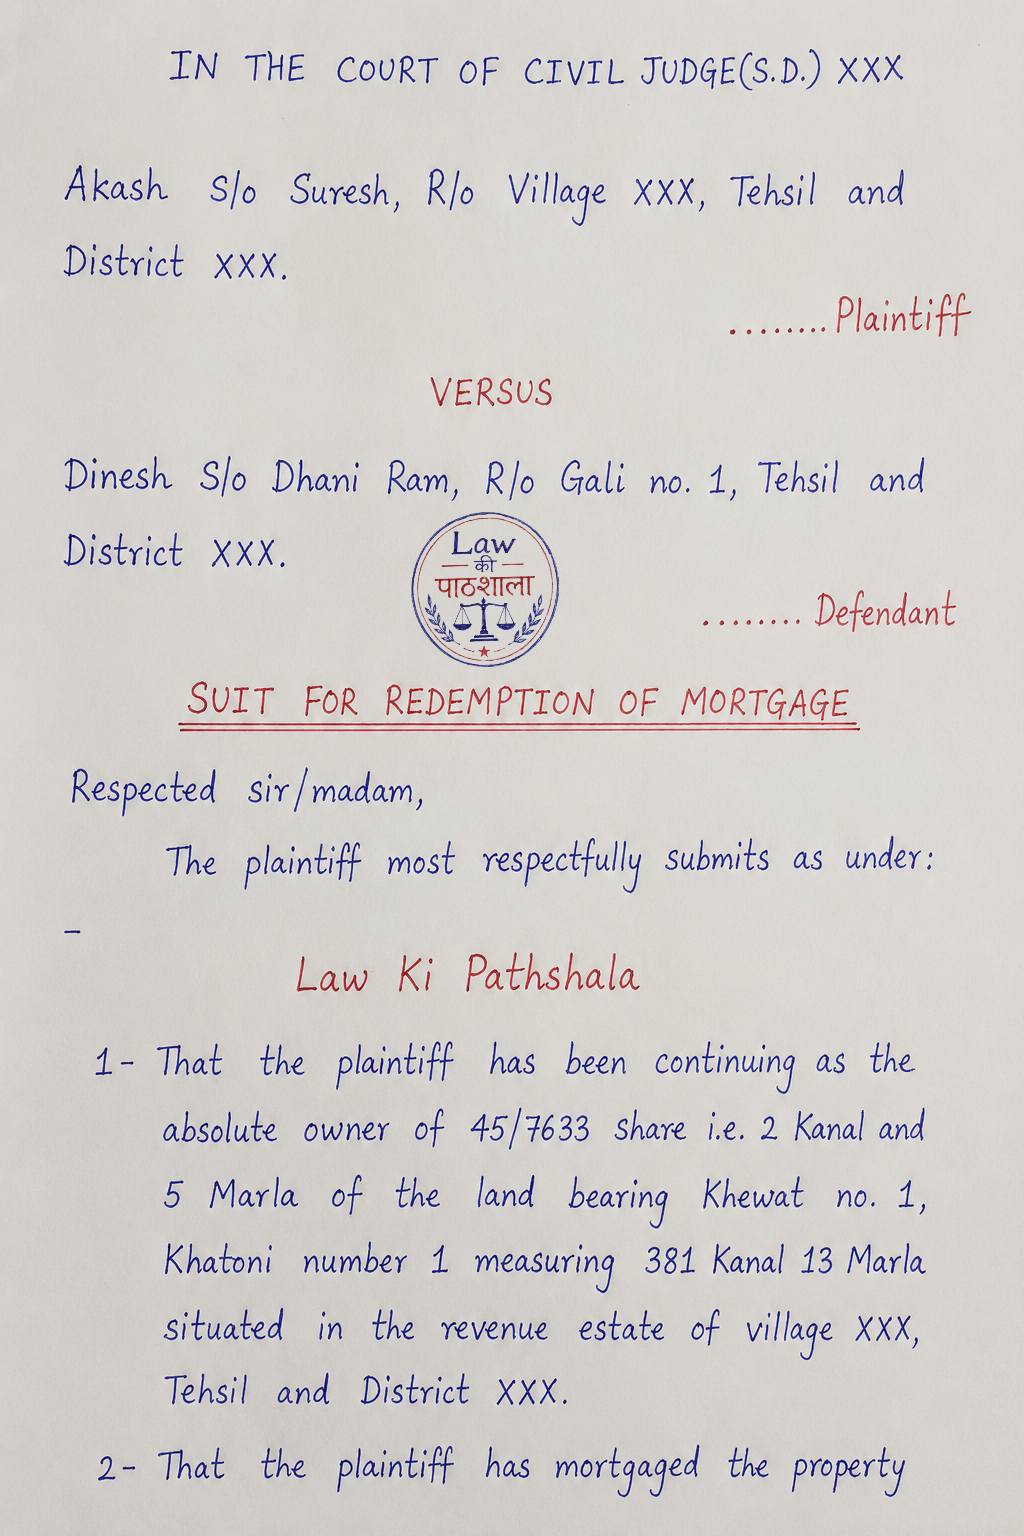 IN THE COURT OF CIVIL JUDGE(S.D.) XXX
Akash S/o Suresh, R/o Village XXX, Tehsil and
District XXX.
........Plaintiff
VERSUS
Dinesh S/o Dhani Ram, R/o Gali no. 1, Tehsil and
District XXX.
Law
की
पाठशाला
........ Defendant
SUIT FOR REDEMPTION OF MORTGAGE
Respected sir/madam,
The plaintiff most respectfully submits as under:
-
Law Ki Pathshala
1- That the plaintiff has been continuing as the
absolute owner of 45/7633 share i.e. 2 Kanal and
5 Marla of the land bearing Khewat no. 1,
Khatoni number 1 measuring 381 Kanal 13 Marla
situated in the revenue estate of village XXX,
Tehsil and District XXX.
2- That the plaintiff has mortgaged the property